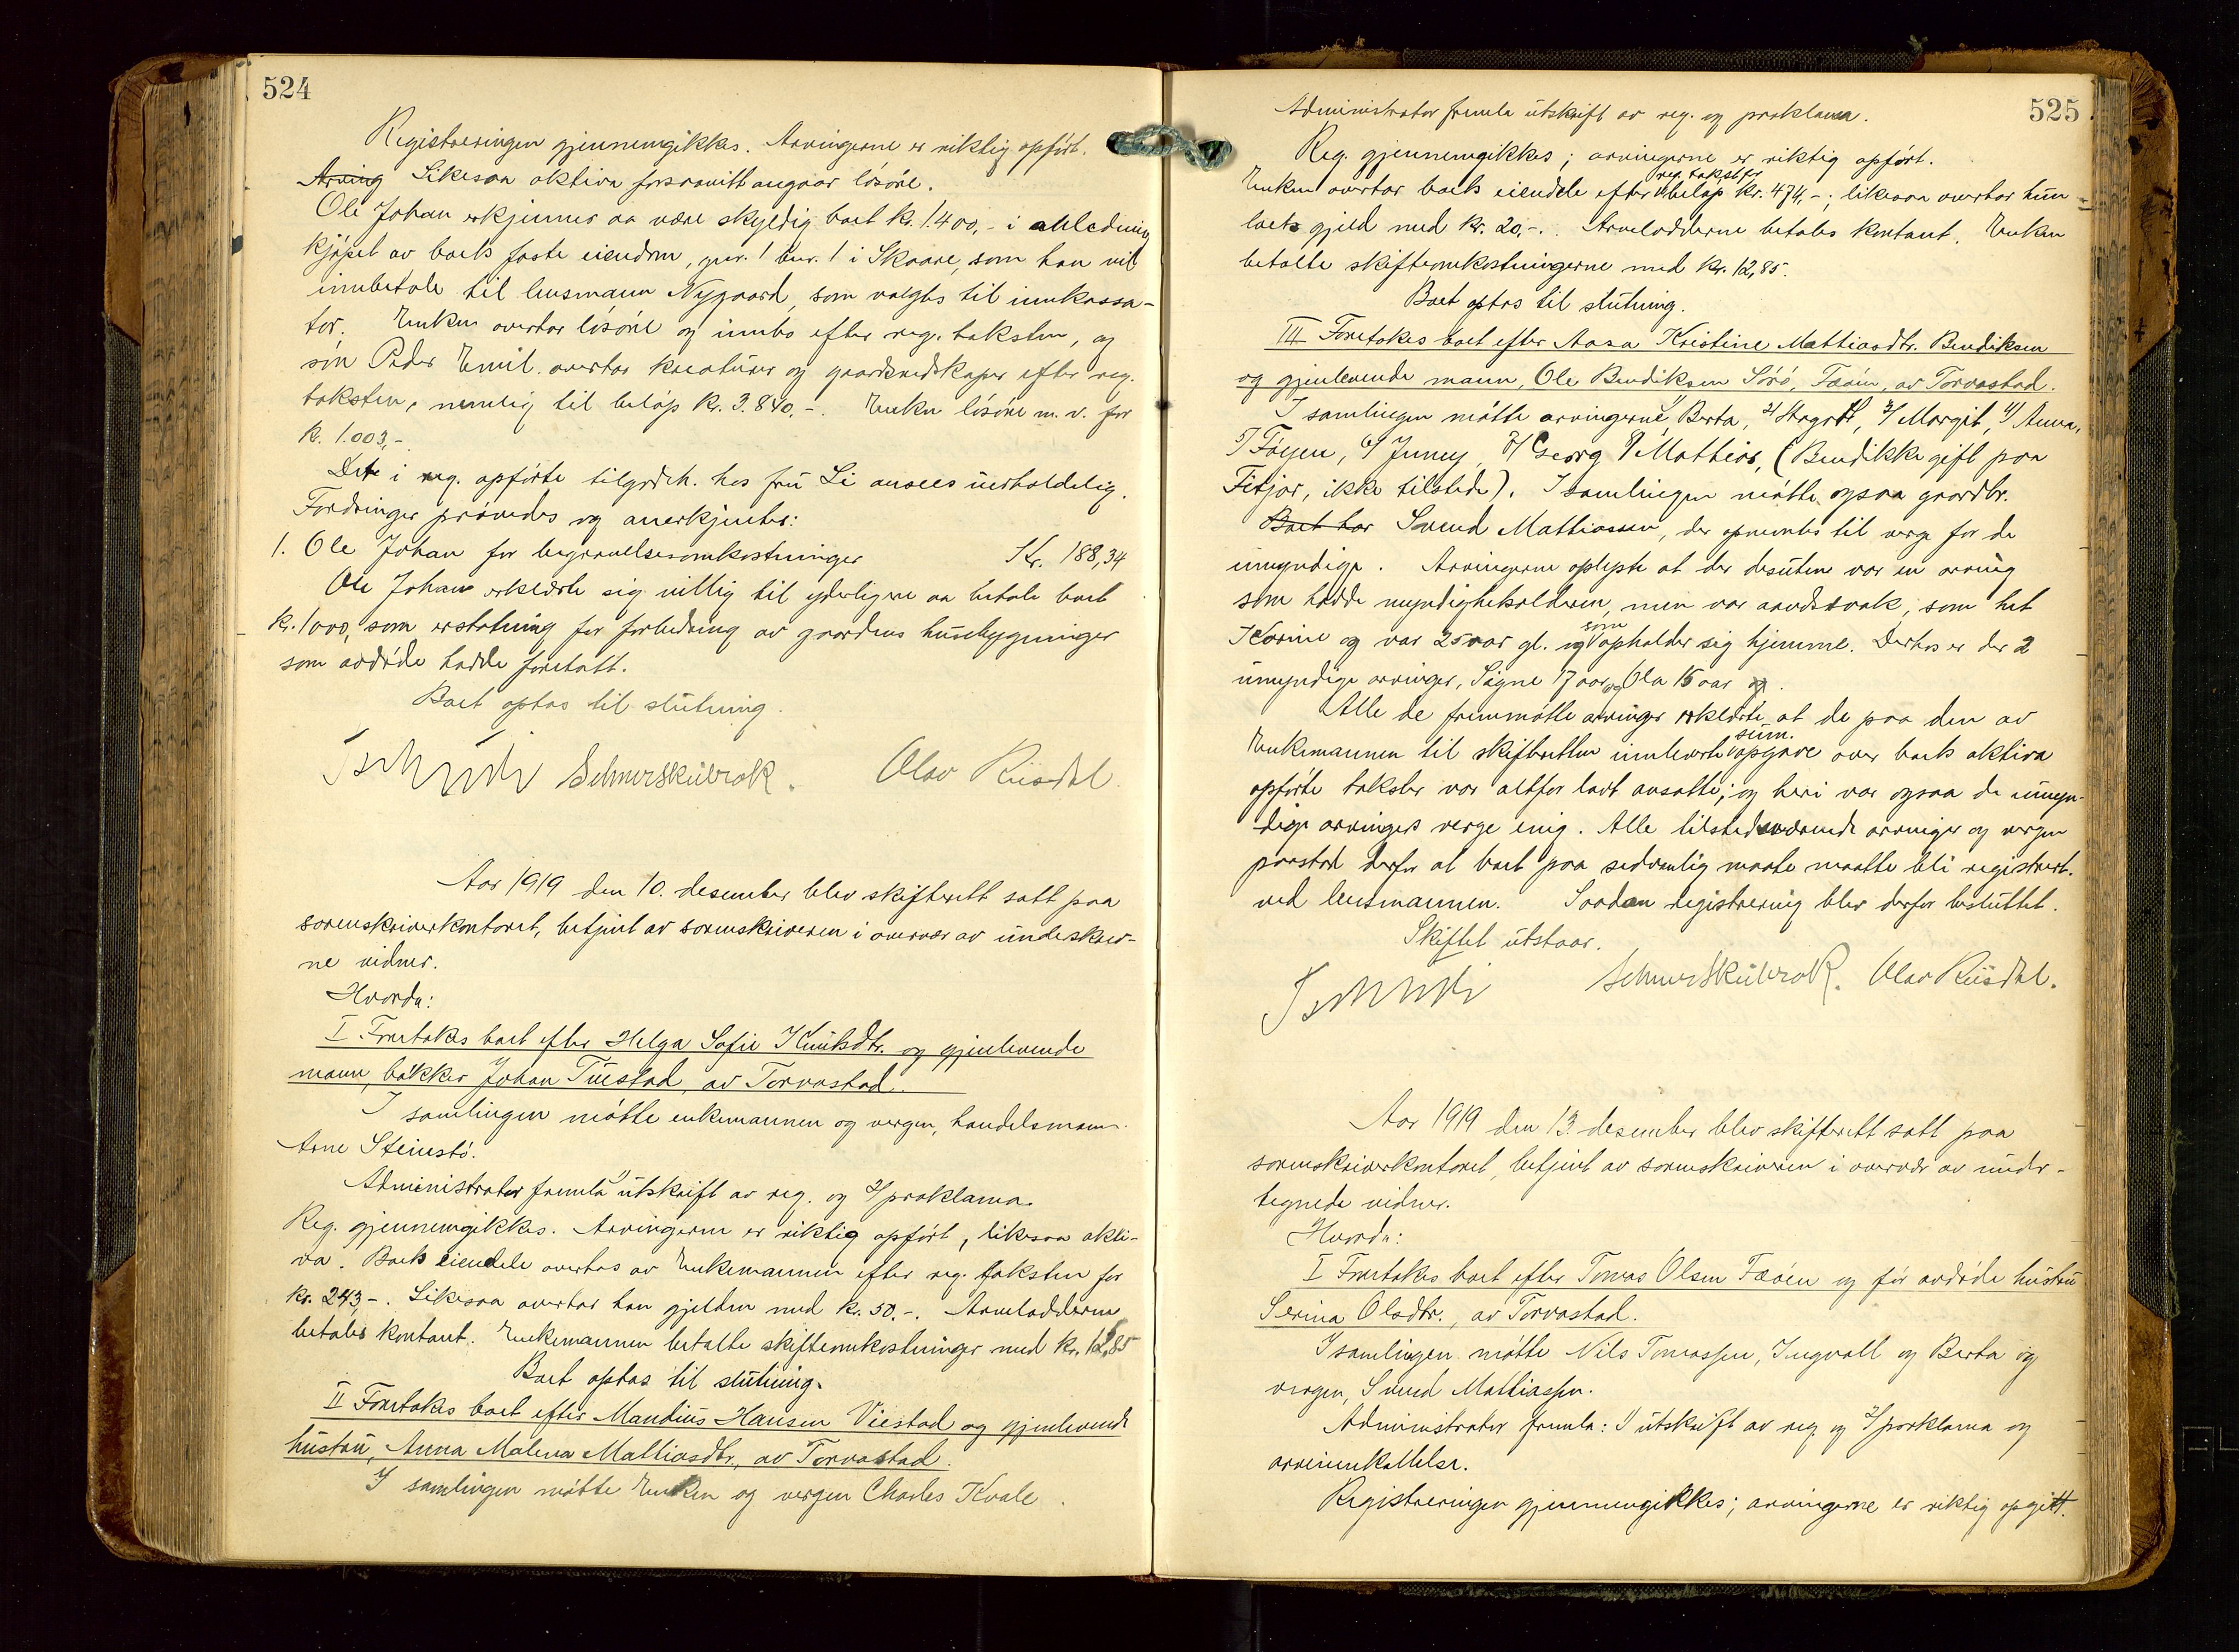 524
Registreringen gjennemgikkes. Arvingerne er riktig opført.
Arving Likesaa aktiva forsaavitt angaar løsøre.
Ole Johan erkjenner aa være skyldig boet kr. 1.400,- i anledning
kjøpet av boets faste eiendom, gnr. 1 bnr. 1 i Skaare, som han vil
innbetale til lensmann Nygaard, som valgtes til innkassa-
tor. Enken overtar løsøre og innbo efter reg. taksten, og
søn Peder Emil overtar kreaturer og gaardsredskaper efter reg.
taksten, nemlig til beløp kr. 3.840,-. Enken løsøre m. v. for
kr. 1.003,-
Det i reg. opførte tilgodeh. hos fru Li ansees uerholdelig.
Fordringer prøvedes og anerkjentes:
1. Ole Johan for begravelsesomkostninger Kr. 188,34
Ole Johan erklærte sig villig til yderligere aa betale boet
kr. 1000, som erstatning for forbedring av gaardens husebygninger
som avdøde hadde foretatt.
Boet optas til slutning.
Schnerskubrok. Olav Riisdal.
Aar 1919 den 10. desember blev skifterett satt paa
sorenskriverkontoret, betjent av sorenskriveren i overvær av underskrev-
ne vidner.
Hvorda:
I Foretakes boet efter Helga Sofie Knutsdtr. og gjenlevende
mann, bakker Johan Tuestad, av Torvastad.
I samlingen møtte enkemannen og vergen, handelsmann
Arne Steinstø.
Administrator fremla 1/ utskrift av reg. og 2/ proklama.
Reg. gjennemgikkes. Arvingerne er riktig opført, likesaa akti-
va. Boets eiendele overtas av Enkemannen efter reg. taksten for
kr. 243,-. Likesaa overtar han gjelden med kr. 50,-. Arvelodderne
betales kontant. Enkemannen betalte skifteomkostninger med kr. 12,85
Boet optas til slutning.
II Foretakes boet efter Mandius Hansen Viestad og gjenlevende
hustru, Anna Malena Mattiasdtr., av Torvastad.
I samlingen møtte Enken og vergen Charles Kvale.
525
Administrator fremla utskrift av reg. og proklama.
Reg. gjennemgikkes; arvingerne er riktig opført.
reg. takst for
Enken overtar boets eiendele efter beløp kr. 474,-; likesaa overtar hun
boets gjeld med kr. 20,-. Arvelodderne betales kontant. Enken
betalte skifteomkostningerne med kr. 12,85.
Boet optas til slutning.
III Foretakes boet efter Aasa Kristine Mattiasdtr. Bendiksen
og gjenlevende mann, Ole Bendiksen Sørø, Fæøen, av Torvastad.
I samlingen møtte arvingerne 1/ Berta, 2/ 3/ Margit, 4/ Anna,
5/ Føyen, 6/ Jenny, 7/ Georg 8/ Mattias, (Bendikke gift paa
Fitjar, ikke tilstede). I samlingen møtte ogsaa gaardbr.
Boet har Svend Mattiassen, der opnevntes til verge for de
umyndige. Arvingerne oplyste at der desuten var en arving
som hadde myndighetsalderen, men var aandssvak, som het
som
Karine og var 25 aar gl. og opholder sig hjemme. Derhos er der 2
umyndige arvinger, Signe 17 aar, og Ola 15 aar og.
Alle de fremmøtte arvinger erklærte at de paa den av
sum.
Enkemannen til skifteretten innleverte opgave over boets aktiva
opførte takster var altfor lavt ansatte; og heri var ogsaa de umyn-
dige arvingers verge enig. Alle tilstedeværende arvinger og vergen
paastod derfor at boet paa sedvanlig maate maatte bli registrert
ved lensmannen. Saadan registrering blev derfor besluttet.
Skiftet utstaar.
Schnerskubrok. Olav Riisdal.
Aar 1919 den 13. desember blev skifterett satt paa
sorenskriverkontoret, betjent av sorenskriveren i overvær av under-
tegnede vidner.
Hvorda:
I Foretakes boet efter Tomas Olsen Fæøen og før avdøde hustru
Serina Olsdtr., av Torvastad.
I samlingen møtte Nils Tomassen, Ingvall og Berta og
vergen, Svend Mattiassen.
Administrator fremla: 1/ utskrift av reg. og 2/ porklama og
arveinnkallelse.
Registreringen gjennemgikkes; arvingerne er riktig opgitt.